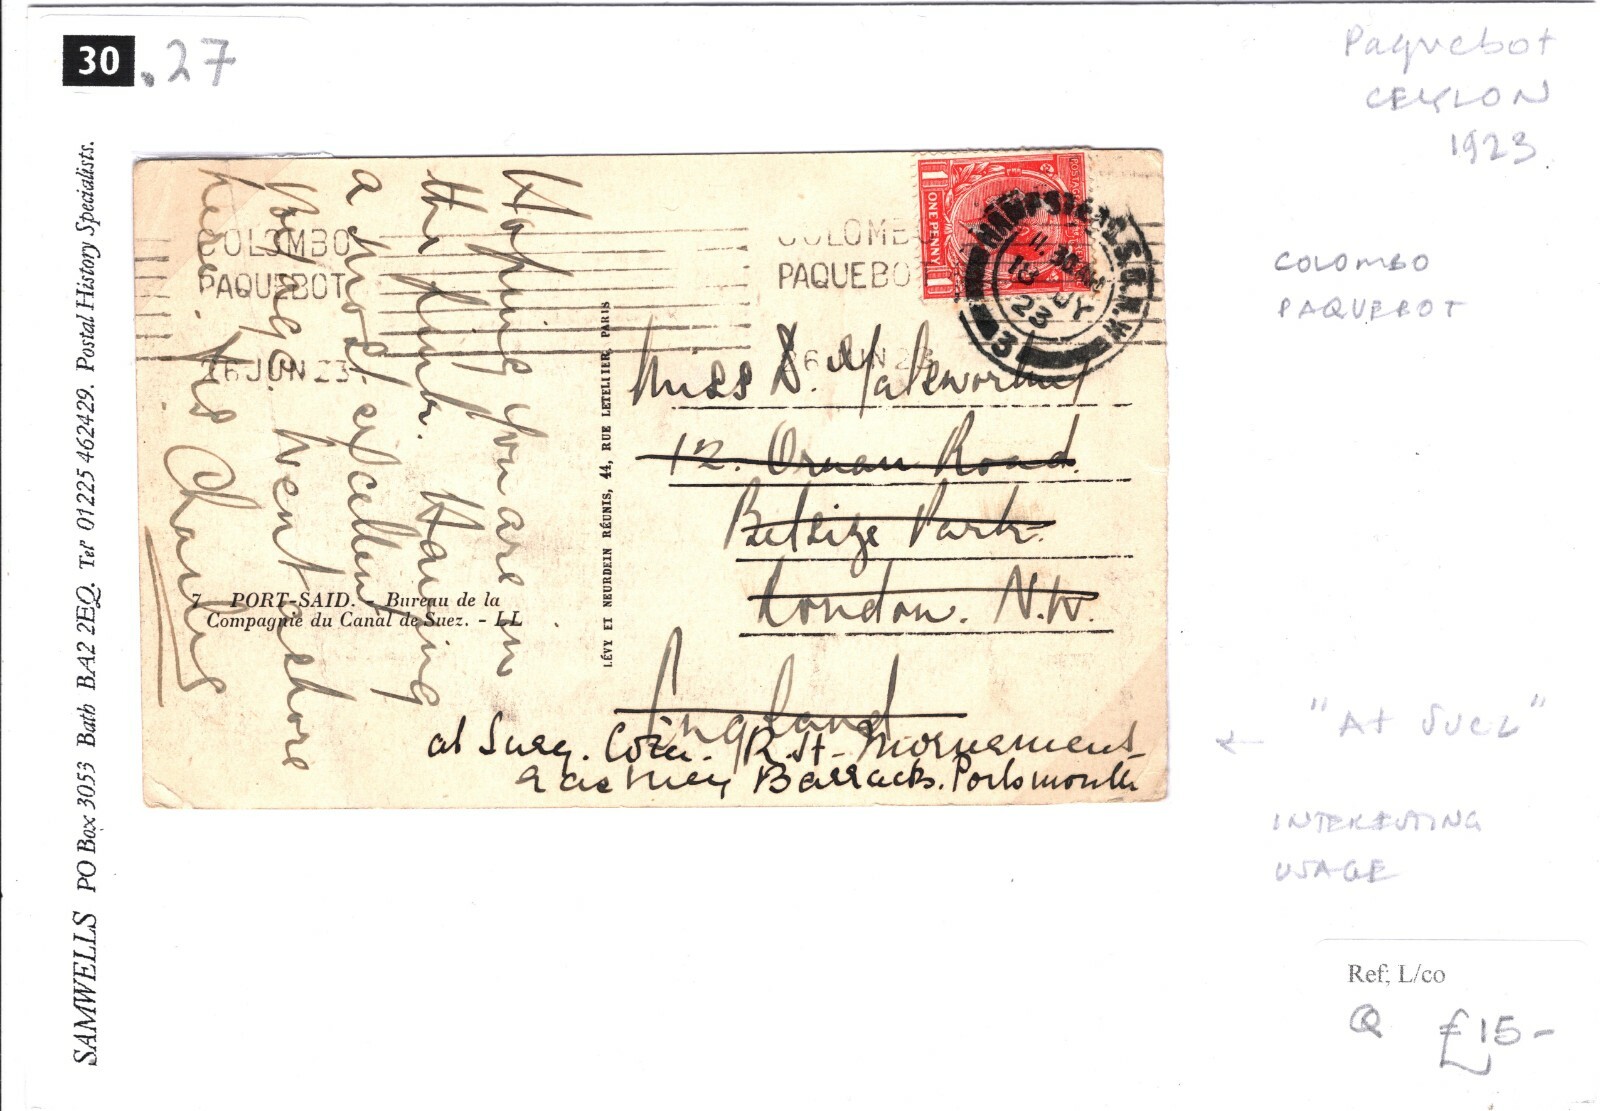 30 .27
Paquebot
CEYLON
1923
SAMWELLS PO Box 3053 Bath BA2 2EQ. Tel 01225 462429. Postal History Specialists.
COLOMBO
PAQUEBOT
26 JUN 23
COLOMBO
PAQUEBOT
26 JUN 23
POSTAGE
ONE PENNY
HAMPSTEAD. S.O. N.W.
11.30AM
18 JY
23
3
Hoping you are in
the limbr. Having
a most excellent
voyage. Went ashore
here. Yrs Charles
7 PORT-SAID. - Bureau de la
Compagnie du Canal de Suez. - LL
LÉVY ET NEURDEIN RÉUNIS, 44, RUE LETELLIER, PARIS
Miss D.
12. Ornan Road.
Belsize Park.
London. N.W.
England
at R.H.
Eastney Barracks. Portsmouth
COLOMBO
PAQUEBOT
← "At SUEZ"
INTERESTING
USAGE
Ref; L/co
Q £15-